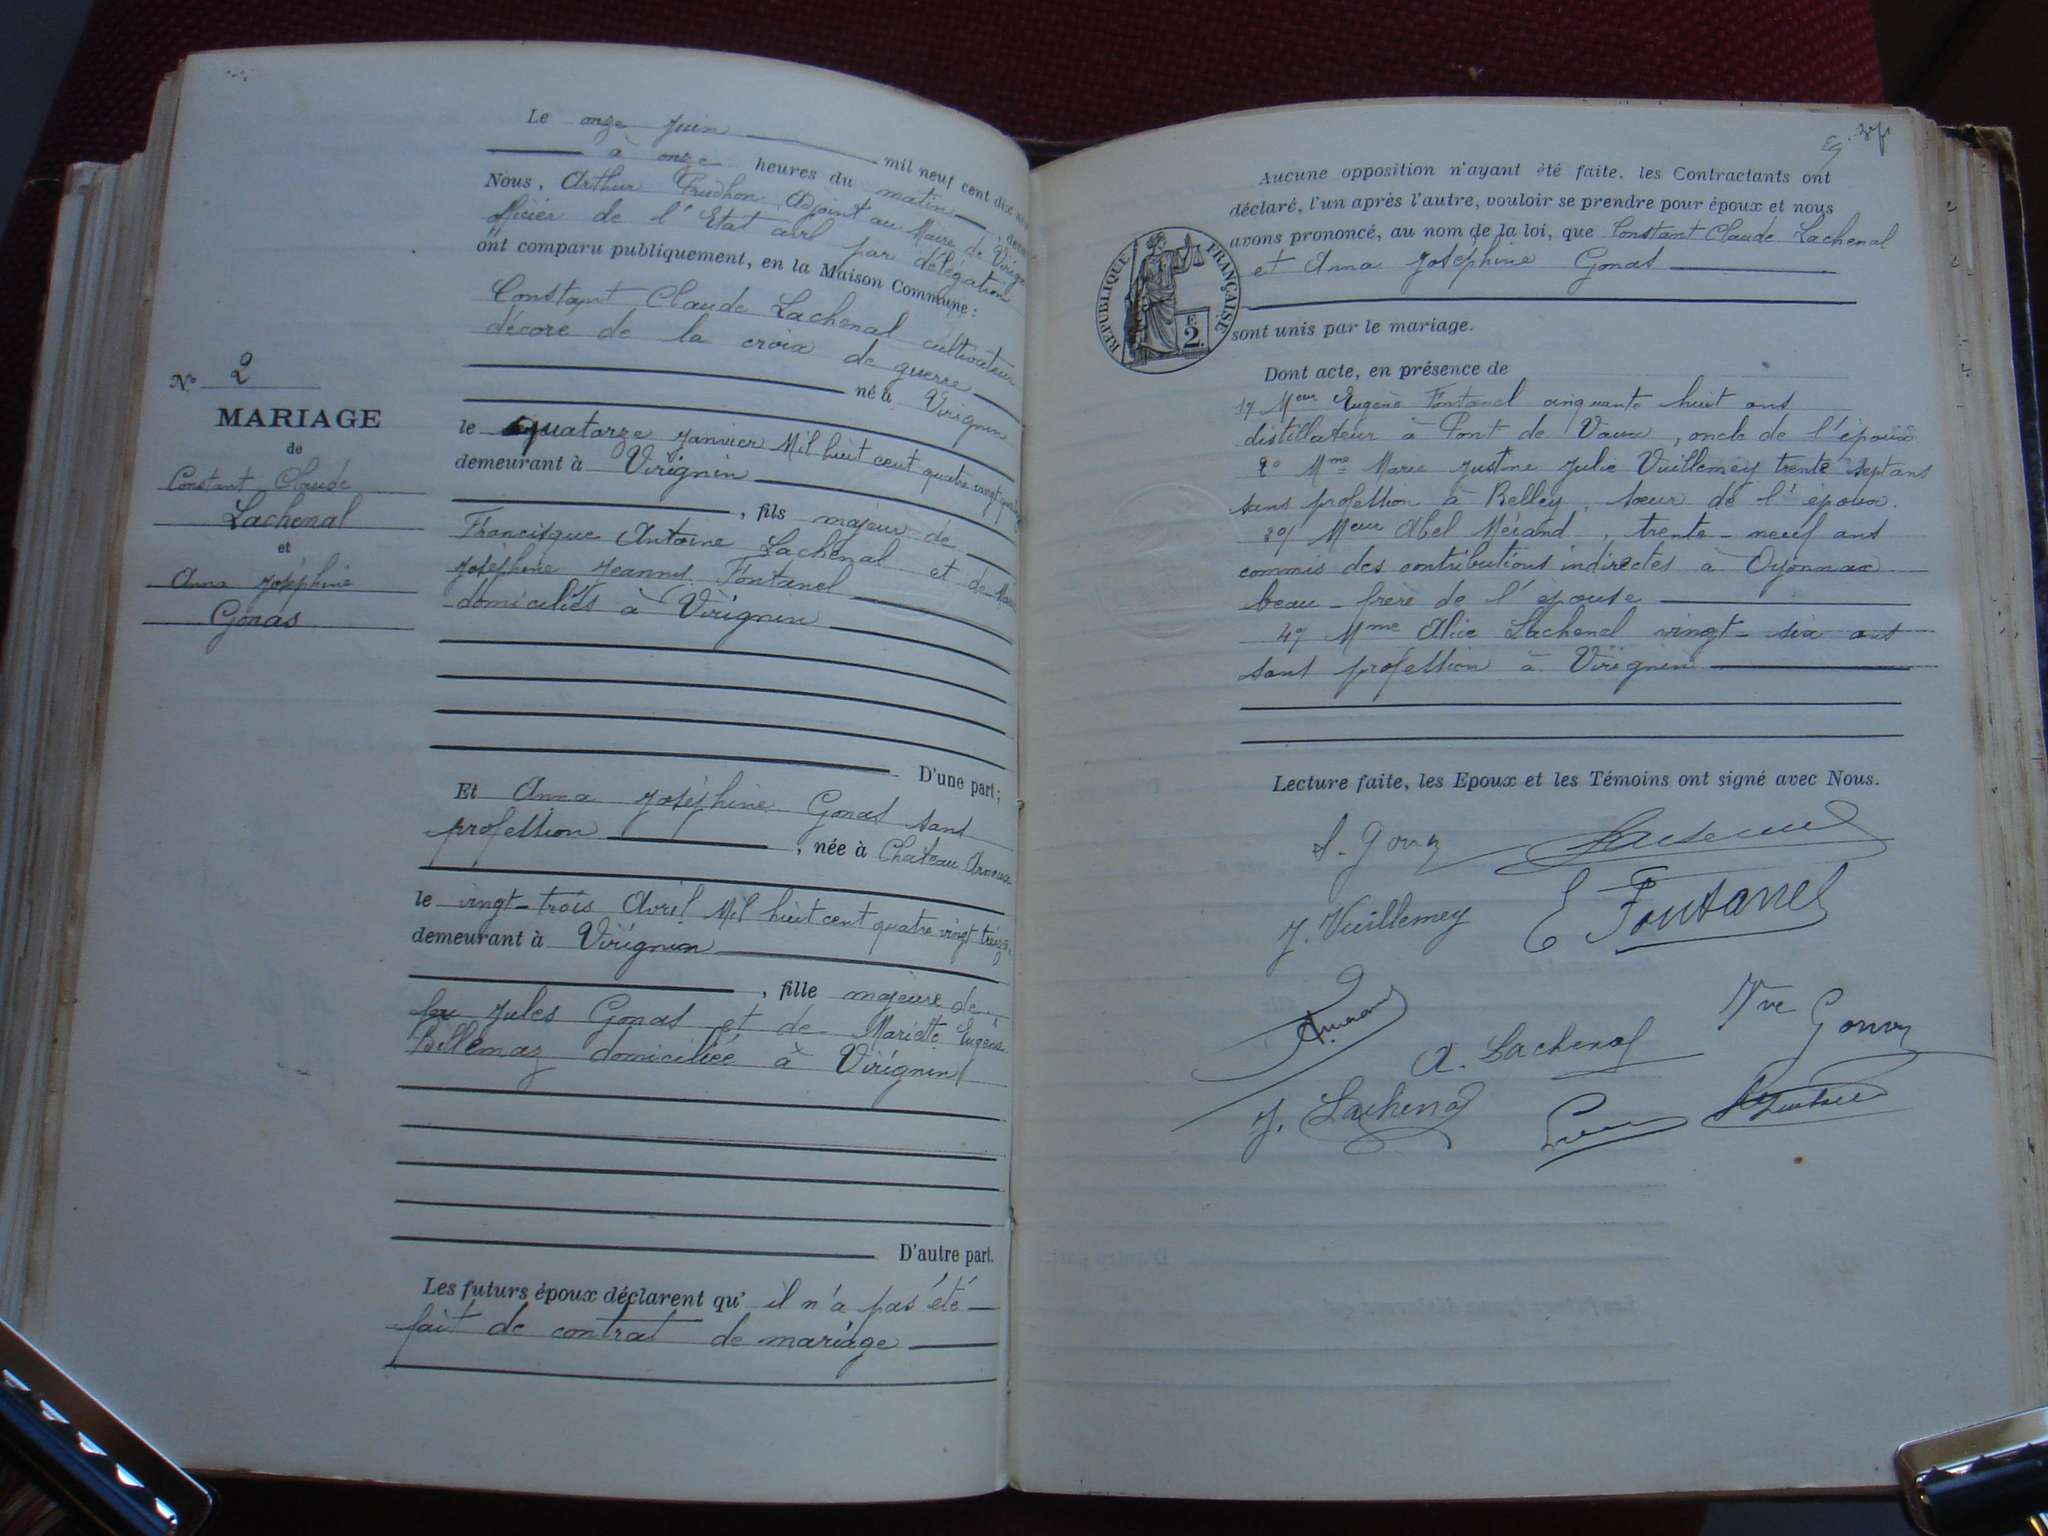 Le onze Juin mil neuf cent dix
à onze heures du matin
Nous, Arthur Prudhon, Adjoint au Maire de Virignin
officier de l'Etat civil par délégation
ont comparu publiquement, en la Maison Commune:
Constant Claude Lachenal cultivateur
décoré de la croix de guerre
né à Virignin
le quatorze Janvier Mil huit cent quatre vingt
demeurant à Virignin
, fils majeur de
Francisque Antoine Lachenal et de
Joséphine Jeanny Fontanel
domiciliés à Virignin
D'une part;
Et Anna Joséphine Gonas sans
profession , née à Château Arnoux
le vingt-trois Avril Mil huit cent quatre vingt treize
demeurant à Virignin
, fille majeure de
feu Jules Gonas et de Mariette
Billemaz domiciliée à Virignin
D'autre part.
Les futurs époux déclarent qu'il n'a pas été
fait de contrat de mariage
No 2
MARIAGE
de
Constant Claude
Lachenal
et
Anna Joséphine
Gonas
Aucune opposition n'ayant été faite, les Contractants ont
déclaré, l'un après l'autre, vouloir se prendre pour époux et nous
avons prononcé, au nom de la loi, que Constant Claude Lachenal
et Anna Joséphine Gonas
RÉPUBLIQUE FRANÇAISE
2
sont unis par le mariage.
Dont acte, en présence de
1º Meur Eugène Fontanel cinquante huit ans
distillateur à Pont de Vaux, oncle de l'époux
2º Mme Marie Justine Julie Vuillemey trente sept ans
sans profession à Belley, sœur de l'époux.
3º Meur Abel Mérand, trente-neuf ans
commis des contributions indirectes à Oyonnax
beau-frère de l'épouse
4º Mme Alice Lachenal vingt-six ans
sans profession à Virignin
Lecture faite, les Epoux et les Témoins ont signé avec Nous.
J. Vuillemey E Fontanel
A. Lachenal Vve
J. Lachenal